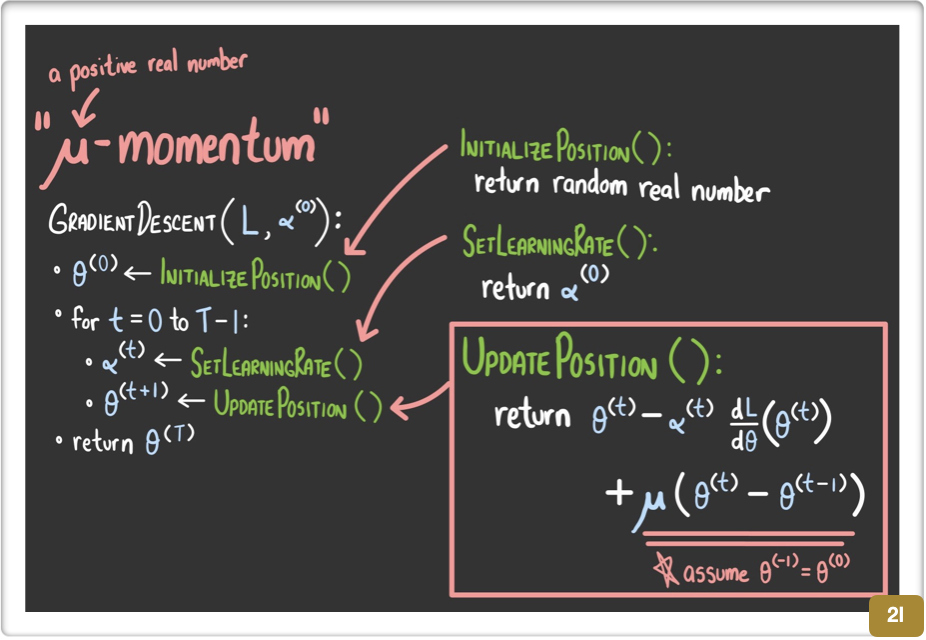 a positive real number
"μ-momentum"
GRADIENTDESCENT(L, α^(0)):
• θ^(0) ← INITIALIZEPOSITION()
• for t = 0 to T-1:
• α^(t) ← SETLEARNINGRATE()
• θ^(t+1) ← UPDATEPOSITION()
• return θ^(T)
INITIALIZEPOSITION():
return random real number
SETLEARNINGRATE():
return α^(0)
UPDATEPOSITION():
return θ^(t) - α^(t) dL/dθ (θ^(t))
+ μ(θ^(t) - θ^(t-1))
☆ assume θ^(-1) = θ^(0)
21